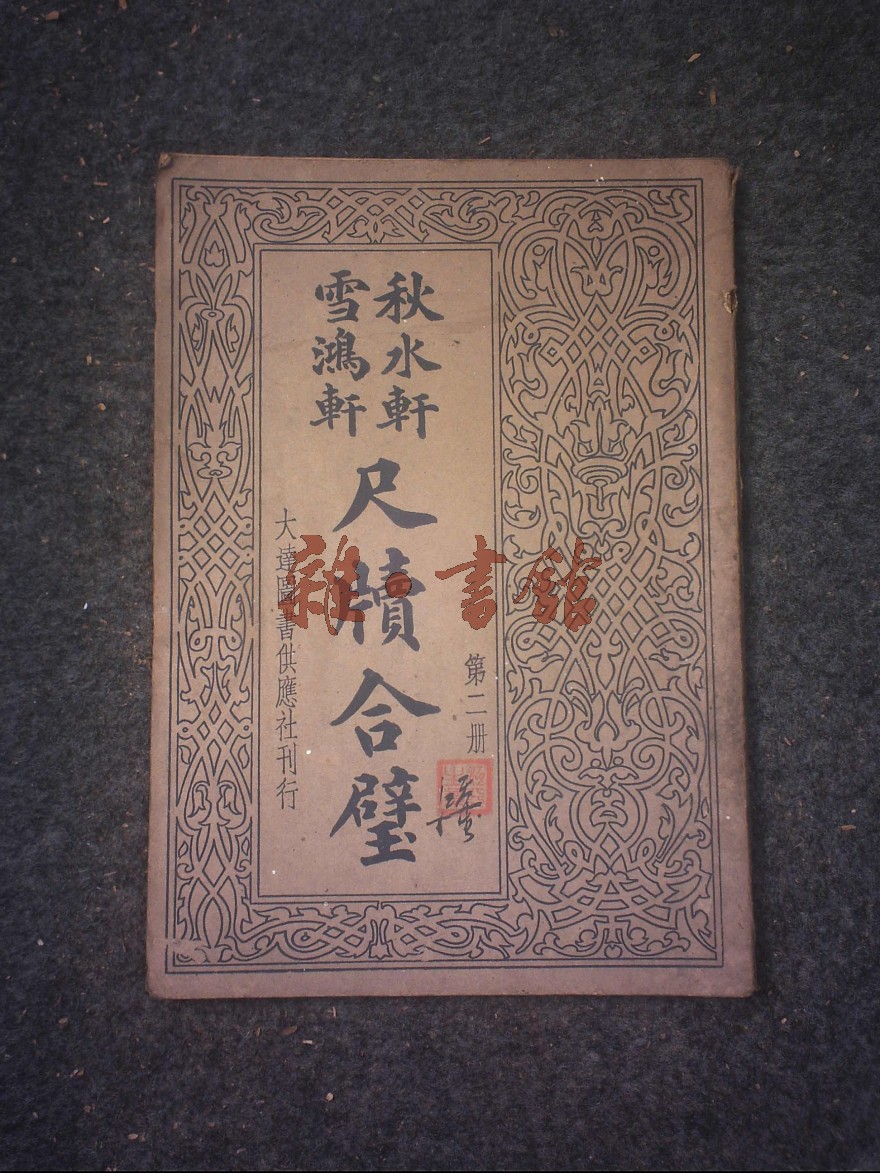 秋水軒
雪鴻軒
尺牘合璧
第二册
大達圖書供應社刊行
雜·書館